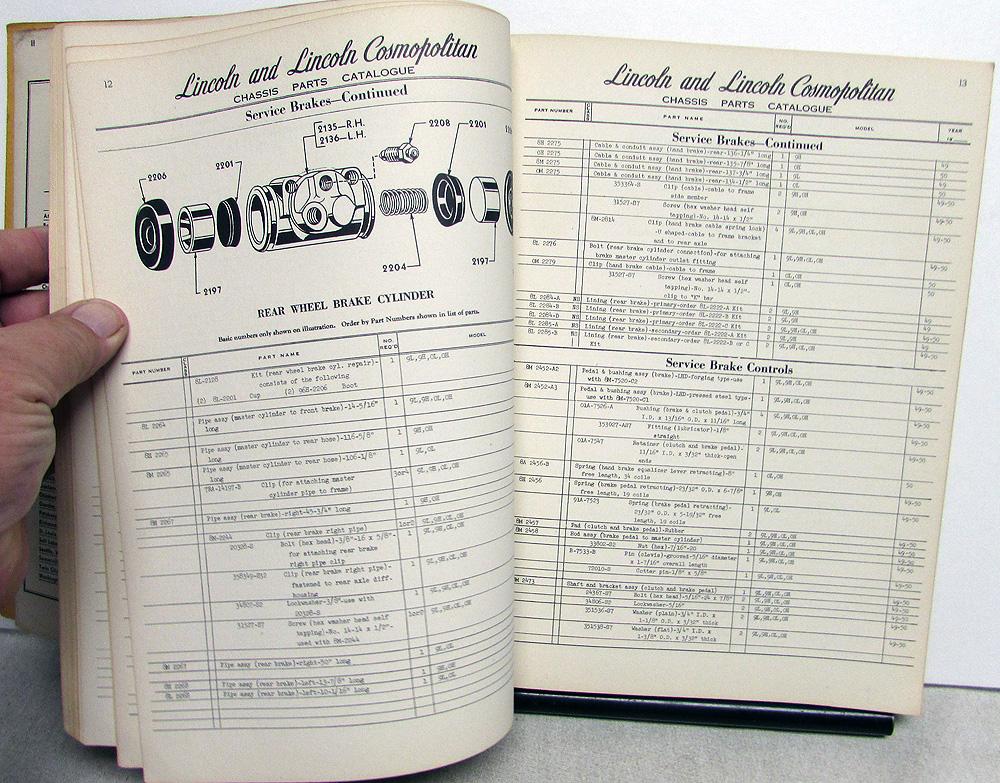 12
Lincoln and Lincoln Cosmopolitan
CHASSIS PARTS CATALOGUE
Service Brakes—Continued
2135—R.H.
2136—L.H.
2208
2201
2201
2206
2197
2204
2197
REAR WHEEL BRAKE CYLINDER
Basic numbers only shown on illustration. Order by Part Numbers shown in list of parts.
PART NUMBER PART NAME NO. REQ'D MODEL
8L-2128 Kit (rear wheel brake cyl. repair)- 1 9L,9H,0L,0H
consists of the following
(2) 8L-2201 Cup (2) 06H-2206 Boot
8L 2264 Pipe assy (master cylinder to front brake)-14-5/16" 1 9L,9H,0L,0H
long
8L 2265 Pipe assy (master cylinder to rear hose)-116-5/8" 1 9H,0H
long
8M 2265 Pipe assy (master cylinder to rear hose)-106-1/8" 1 9L,0L
long
78A-14197-B Clip (for attaching master 3or4 9L,9H,0L,0H
cylinder pipe to frame)
8M 2267 Pipe assy (rear brake)-right-45-3/4" long 1 9H,0H
8M-2244 Clip (rear brake right pipe) 1or2 9L,9H,0L,0H
20328-S Bolt (hex head)-3/8"-16 x 5/8"- 1 9L,9H,0L,0H
for attaching rear brake
right pipe clip
358349-S32 Clip (rear brake right pipe)- 1 9L,9H,0L,0H
fastened to rear axle diff.
housing
34807-S2 Lockwasher-3/8"-use with 1 9L,9H,0L,0H
20328-S
31527-S7 Screw (hex washer head self 1or2 9L,9H,0L,0H
tapping)-No. 14-14 x 1/2"-
used with 8M-2244
Pipe assy (rear brake)-right-50" long 1 9L,0L
8M 2268 Pipe assy (rear brake)-left-13-7/8" long 1 9H,0H
8L 2268 Pipe assy (rear brake)-left-10-1/16" long 1 9L,0L
Lincoln and Lincoln Cosmopolitan 13
CHASSIS PARTS CATALOGUE
PART NUMBER PART NAME NO. REQ'D MODEL YEAR
Service Brakes—Continued
8H 2275 Cable & conduit assy (hand brake)-rear-136-1/4" long 1 9H 49
0H 2275 Cable & conduit assy (hand brake)-rear-135-7/8" long 1 0H 50
8M 2275 Cable & conduit assy (hand brake)-rear-137-3/4" long 1 9L 49
0M 2275 Cable & conduit assy (hand brake)-rear-134-1/2" long 1 0L 50
353364-S Clip (cable)-cable to frame 2 9H,0H 49-50
side member
31527-S7 Screw (hex washer head self 2 9H,0H 49-50
tapping)-No. 14-14 x 1/2"
8M-2814 Clip (hand brake cable spring lock) 4 9L,9H,0L,0H 49-50
-U shaped-cable to frame bracket
and to rear axle
8L 2276 Bolt (rear brake cylinder connection)-for attaching 2 9L,9H,0L,0H 49-50
brake master cylinder outlet fitting
0M 2279 Clip (hand brake cable)-cable to frame 1 0L,0H 50
31527-S7 Screw (hex washer head self 1 0L,0H 50
tapping)-No. 14-14 x 1/2"-
clip to "K" bar
8L 2284-A NS Lining (rear brake)-primary-order 8L-2222-A Kit 2 9L,9H 49
8L 2284-B NS Lining (rear brake)-primary-order 8L-2222-B Kit 2 9L,9H 49
8L 2284-D NS Lining (rear brake)-primary-order 8L-2222-C Kit 2 9L,9H,0L,0H 49-50
8L 2285-A NS Lining (rear brake)-secondary-order 8L-2222-A Kit 2 9L,9H 49
8L 2285-B NS Lining (rear brake)-secondary-order 8L-2222-B or C 2 9L,9H,0L,0H 49-50
Kit
Service Brake Controls
8M 2452-A2 Pedal & bushing assy (brake)-LHD-forging type-use 1 9L,9H,0L,0H 49-50
with 8M-7520-C2
8M 2452-A3 Pedal & bushing assy (brake)-LHD-pressed steel type- 1 9L,9H,0L,0H 49-50
use with 8M-7520-C1
01A-7526-A Bushing (brake & clutch pedal)-3/4" 4 9L,9H,0L,0H 49-50
I.D. x 13/16" O.D. x 11/16" long
353027-S7 Fitting (lubricator)-1/8" 2 9L,9H,0L,0H 49-50
straight
01A-7547 Retainer (clutch and brake pedal)- 2 9L,9H,0L,0H 49-50
11/16" I.D. x 3/32" thick-open
ends
8A 2456-B Spring (hand brake equalizer lever retracting)-8" 1 0L,0H 50
free length, 34 coils
8H 2456 Spring (brake pedal retracting)-23/32" O.D. x 6-7/8" 1 9H,0H 49-50
free length, 19 coils
91A-7523 Spring (brake pedal retracting)- 1 9L,0L 49-50
23/32" O.D. x 5-19/32" free
length, 19 coils
8M 2457 Pad (clutch and brake pedal)-Rubber 2 9L,9H,0L,0H 49-50
8M 2458 Rod assy (brake pedal to master cylinder) 1 9L,9H,0L,0H 49-50
33802-S2 Nut (hex)-7/16"-20 1 9L,9H,0L,0H 49-50
B-7533-B Pin (clevis)-grooved-5/16" diameter 1 9L,9H,0L,0H 49-50
x 1-7/16" overall length
72010-S Cotter pin-1/8" x 5/8" 1 9L,9H,0L,0H 49-50
8M 2473 Shaft and bracket assy (clutch and brake pedal) 1 9L,9H,0L,0H 49-50
24367-S7 Bolt (hex head)-5/16"-24 x 7/8" 2 9L,9H,0L,0H 49-50
34806-S2 Lockwasher-5/16" 2 9L,9H,0L,0H 49-50
351536-S7 Washer (plain)-3/4" I.D. x 2 9L,9H,0L,0H 49-50
1-1/8" O.D. x 3/32" thick
351538-S7 Washer (flat)-3/4" I.D. x 2 9L,9H,0L,0H 49-50
1-3/8" O.D. x 3/32" thick